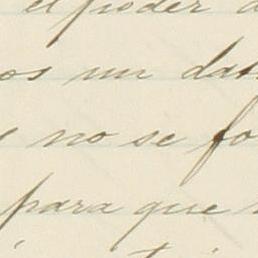 el poder
os un dat
e no se fo
para que